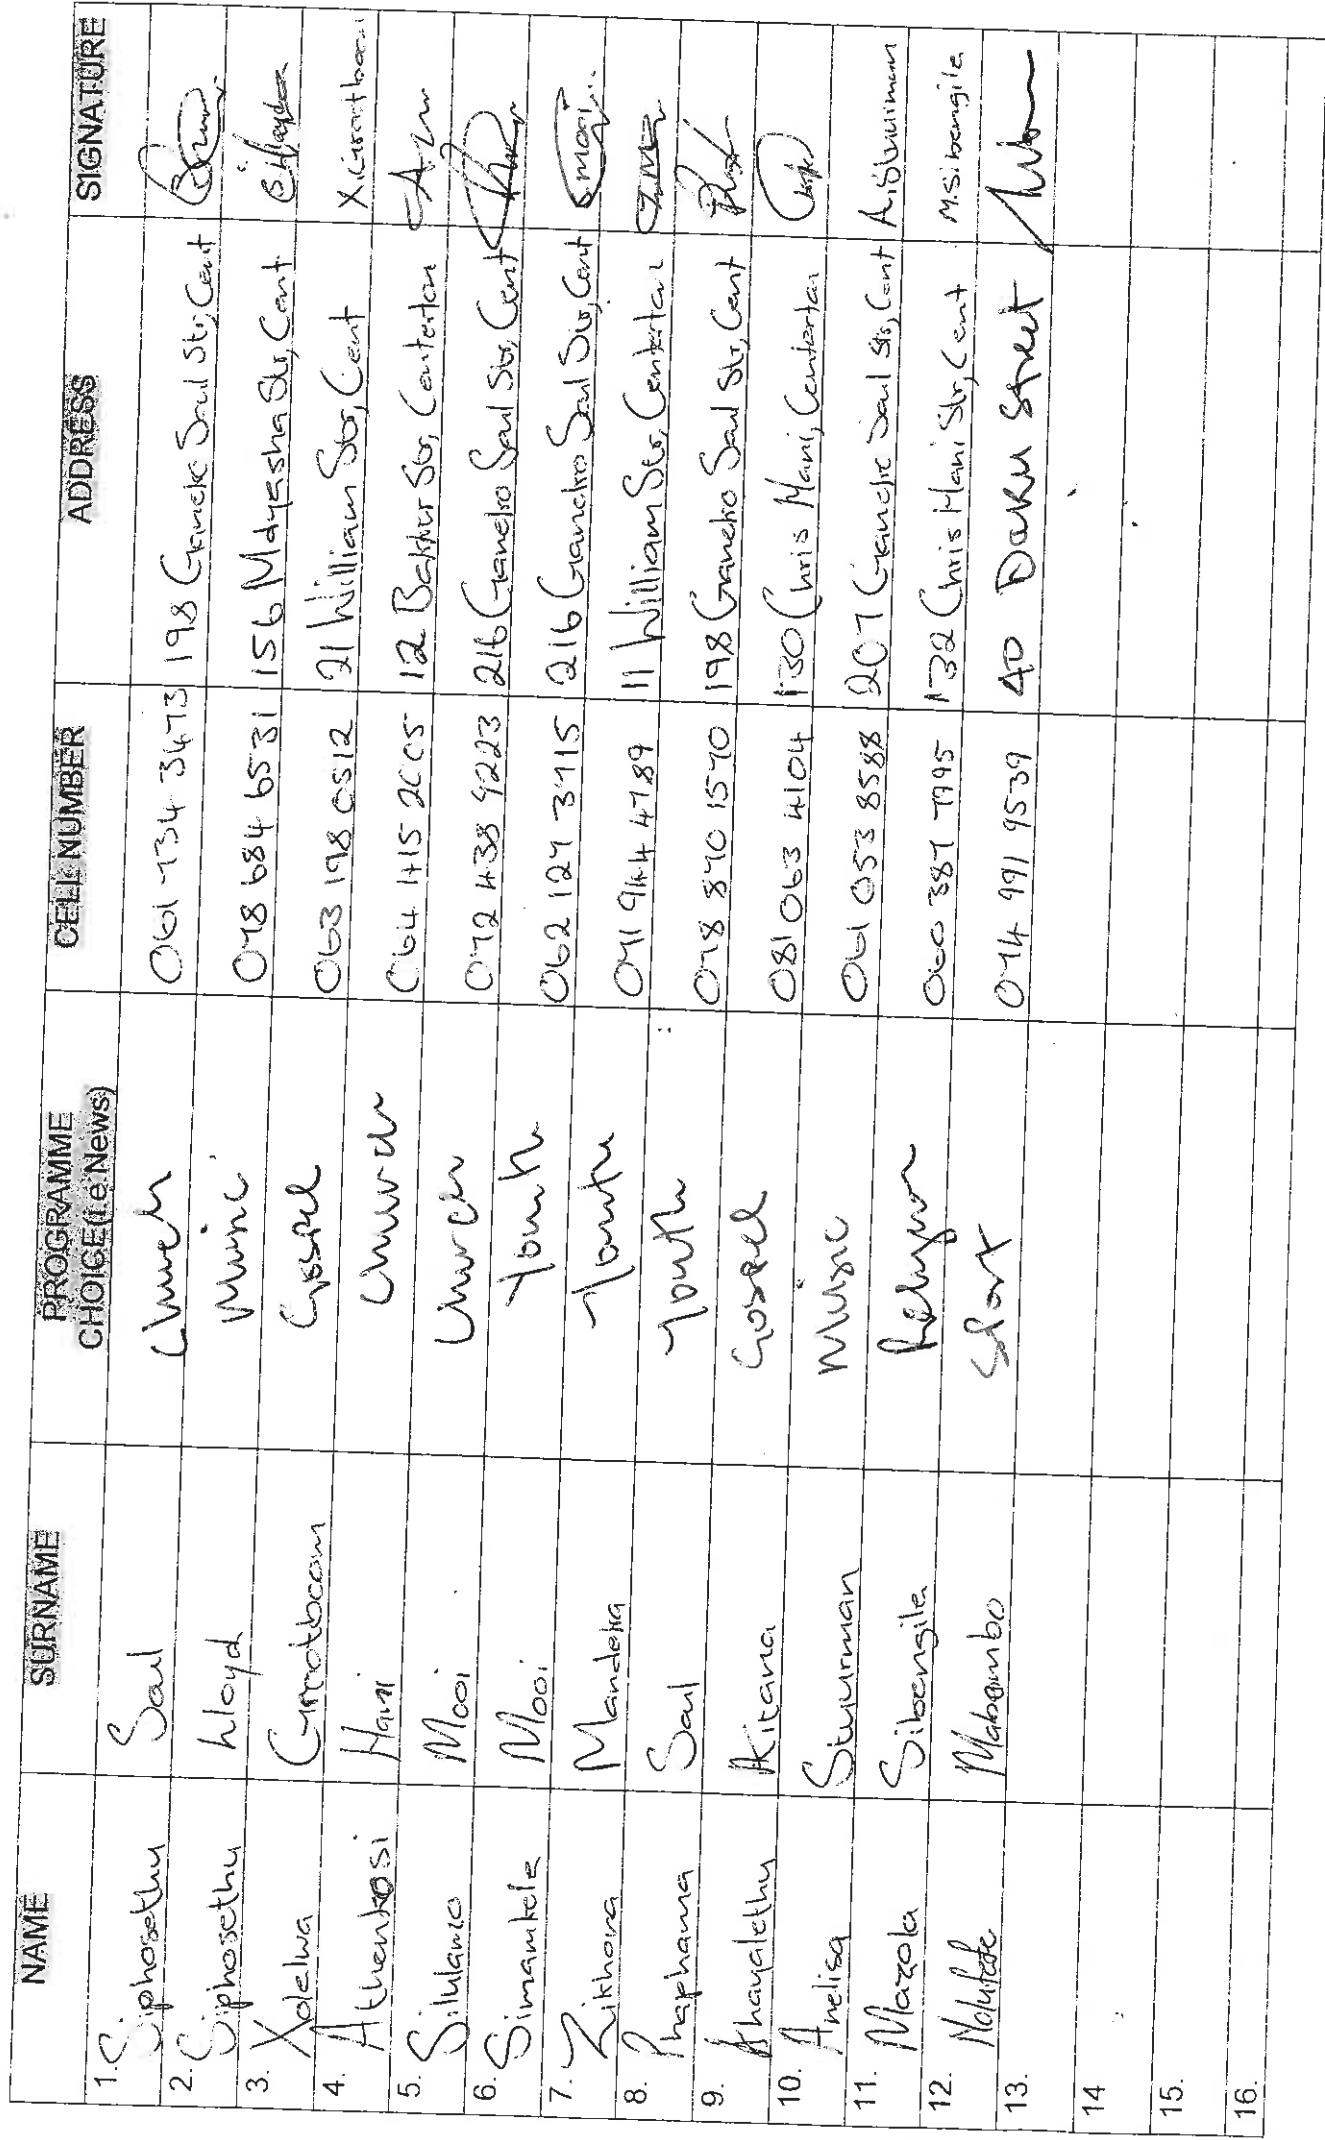 NAME SURNAME PROGRAMME CHOICE(i.e News) CELL NUMBER ADDRESS SIGNATURE
1. Siphosethu Saul Church 061 734 3473 198 Saul Str, Cent
2. Siphosethu Lloyd Music 078 684 6531 156 Mdyasha Str, Cent
3. Xolelwa Grootboom Gospel 063 198 0512 21 William Str, Cent X.Grootboom
4. Athenkosi Hani Church 064 415 2005 12 Str, Centertan
5. Silulamo Mooi Church 072 438 9223 216 Saul Str, Cent
6. Simamkele Mooi Youth 062 127 3715 216 Saul Str, Cent
7. Zikhona Youth 071 944 4789 11 William Str, Centertan
8. Phaphama Saul Youth 078 870 1570 198 Saul Str, Cent
9. Ahayalethu Kitana Gospel 081 063 4104 130 Chris Mani, Centertan
10. Anelisa Stuurman Music 061 053 8588 207 Saul Str, Cent A.Stuurman
11. Mazola Sibengile Religion 060 387 7995 132 Chris Hani Str, Cent M.Sibongile
12. Sport 074 991 9539 40 Daku Street
13.
14
15.
16.